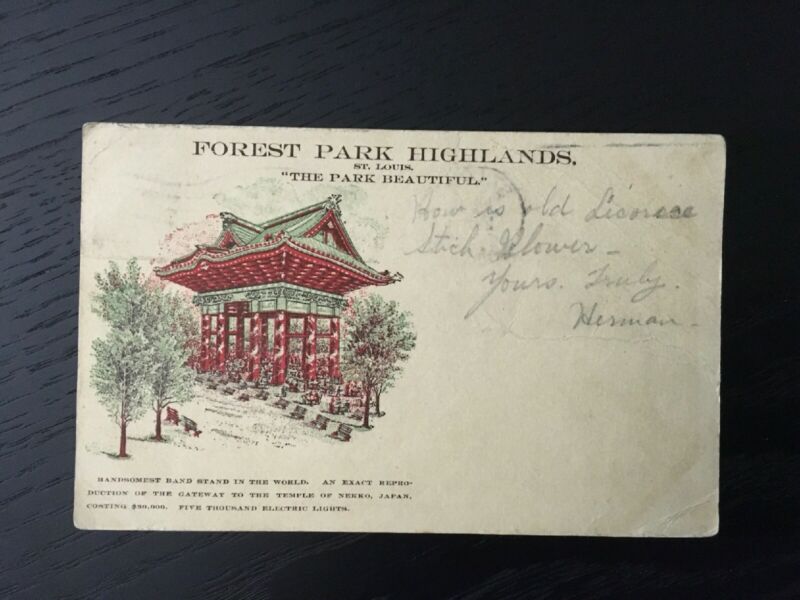 FOREST PARK HIGHLANDS.
ST. LOUIS.
"THE PARK BEAUTIFUL."
How is old Licorace
Stick Blower –
Yours. Truly.
Herman –
HANDSOMEST BAND STAND IN THE WORLD. AN EXACT REPRO-
DUCTION OF THE GATEWAY TO THE TEMPLE OF NEKKO, JAPAN,
COSTING $30,000. FIVE THOUSAND ELECTRIC LIGHTS.